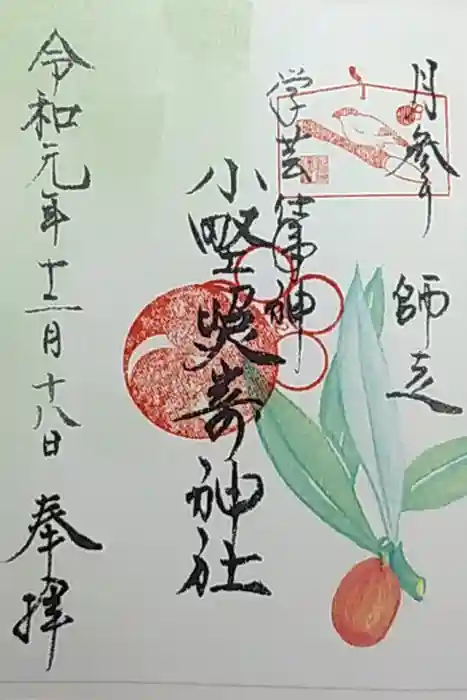 月参り 師走
学芸 神
小野照崎神社
令和元年十二月十八日 奉拝